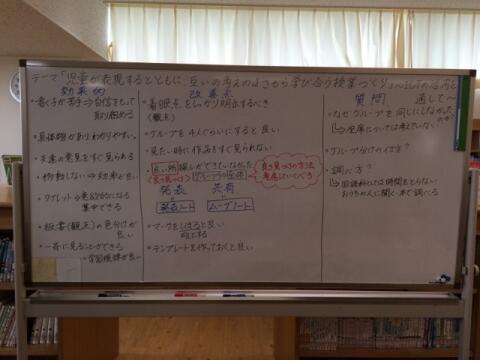 テーマ「児童が表現するとともに 互いの考えのよさから学び合う授業づくり」〜ICTの活用を通して〜
効果的
・書く子が苦手⇒自信をもって取り組める
・具体物がありわかりやすい。
・友達の意見をすぐ見られる
・移動しない⇒効率が良い
・タブレット⇒意欲的になる
集中できる
・板書(観点)の色分けが良い
・一斉に見ることができる
・学習規律が良い
改善点
・着眼点をしっかり明示するべき
(観点)
・グループを4人ぐらいにすると良い
・見たい時に作品をすぐ見られない
・良い所探しができていなかった
見る見つけ グループの
見る見つけの方法
発表 共有
発表ノート ムーブノート
・マークをしぼると良い
・テンプレートを作っておくと良い
質問
・なぜグループを同じにしなかったのか?
・グループ分けのイ方?
・調べ方?
国語科としては時間をとらない
おうちの人に聞く 本で調べる